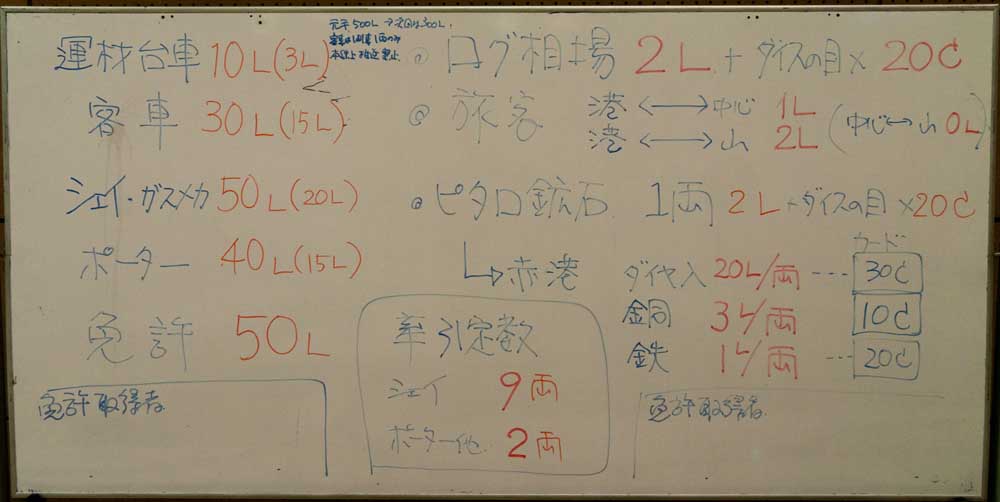 元手500L
運材台車 10L(3L)
客車 30L(15L)
シェイ・ガスメカ 50L(20L)
ポーター 40L(15L)
免許 50L
免許取得者
ログ相場 2L + ダイスの目 × 20¢
旅客 港 ⟷ 中心 1L
港 ⟷ 山 2L
(中心↔山 0L)
ピタロ鉱石 1両 2L + ダイスの目 × 20¢
↳赤港
カード
ダイヤ入 20L/両 --- 30¢
金銅 3L/両 10¢
鉄 1L/両 --- 20¢
牽引定数
シェイ 9両
ポーター他 2両
免許取得者